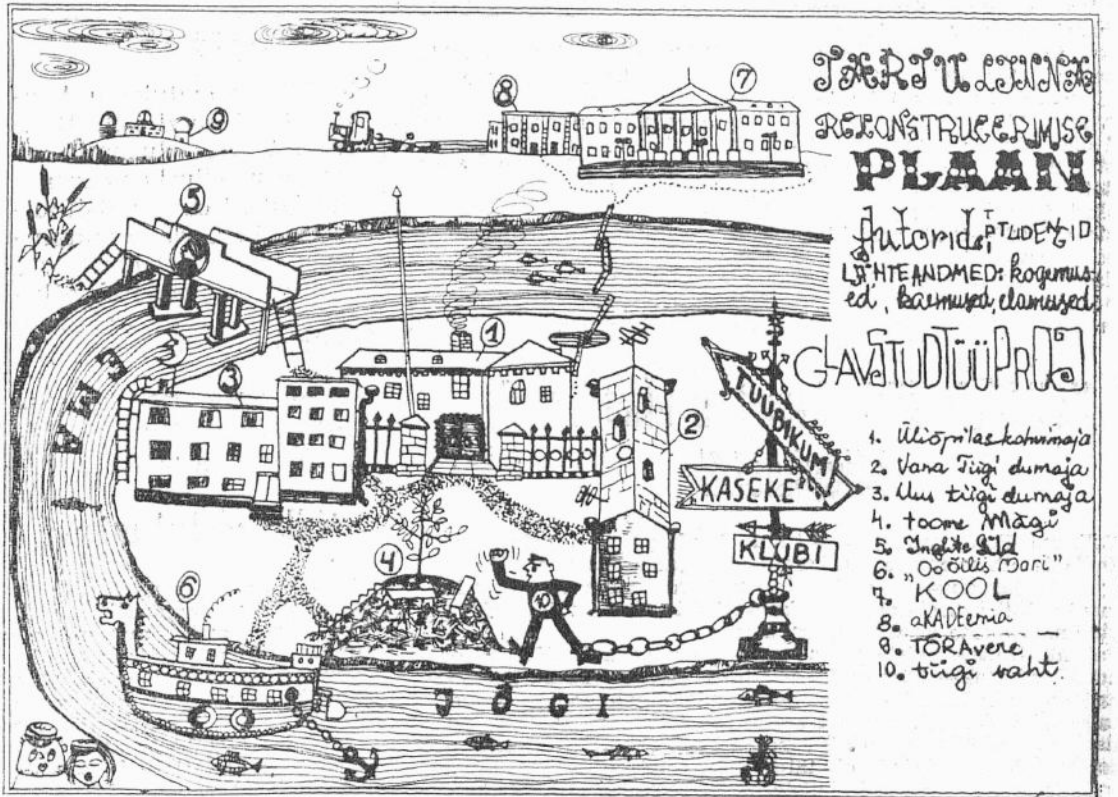 TARTU LINNA
REKONSTRUEERIMISE
PLAAN
Autorid: STUDENGID
LÄHTEANDMED: kogemus-
ed, kaemused, elamused
GLAVSTUDTÜÜPROJ
1. Üliõpilaskohvimaja
2. Vana Tiigi elumaja
3. Uus tiigi elumaja
4. toome Mägi
5. Inglite Sild
6. "Öööilis Mari"
7. KOOL
8. aKADEemia
9. TÕRAvere
10. tiigi vaht
9
8
7
5
EMA
3
1
2
TUUBIKUM
KASEKE
KLUBI
4
10
6
JÕGI